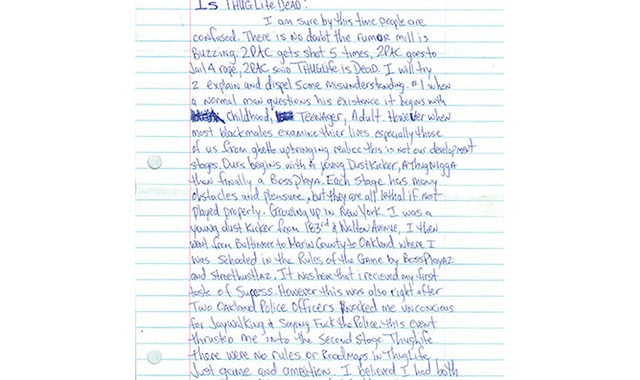 Is THUGLife DEAD?
I am sure by this time people are
confused. There is no doubt the rumor mill is
Buzzing. 2PAC gets shot 5 times, 2PAC goes to
Jail 4 rape, 2PAC said THUGLife is DEAD. I will try
2 explain and dispel some misunderstanding. #1 when
a normal man questions his existence it begins with
childhood, Teenager, Adult. However when
most blackmales examine thier lives especially those
of us from ghetto upbringing realize this is not our development
stages. Ours begins with A young DustKicker, A ThugNigga
then finally a BossPlaya. Each stage has many
obstacles and pleasure, but they are all lethal if not
played properly. Growing up in New York I was a
young dust kicker from 183rd & Walton Avenue, I then
went from Baltimore to Marin County to OAKland where I
was schooled in the Rules of the Game by BossPlayaz
and streethustlaz. It was here that i recieved my first
taste of Sucess. However this was also right after
Two OAKland Police Officers knocked me unconcious
for Jaywalking & Saying Fuck the Police. this event
thrusted me into the Second Stage Thuglife.
there were no rules or Roadmaps in ThugLife
Just game and ambition. I believed I had both